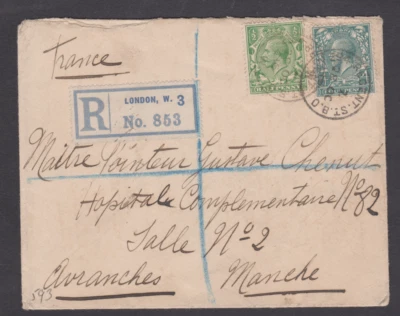 France
R
LONDON, W. 3
No. 853
Maître Pointeur Gustave Chenut
Hopitale Complementaire No 82
Salle No 2
Avranches Manche